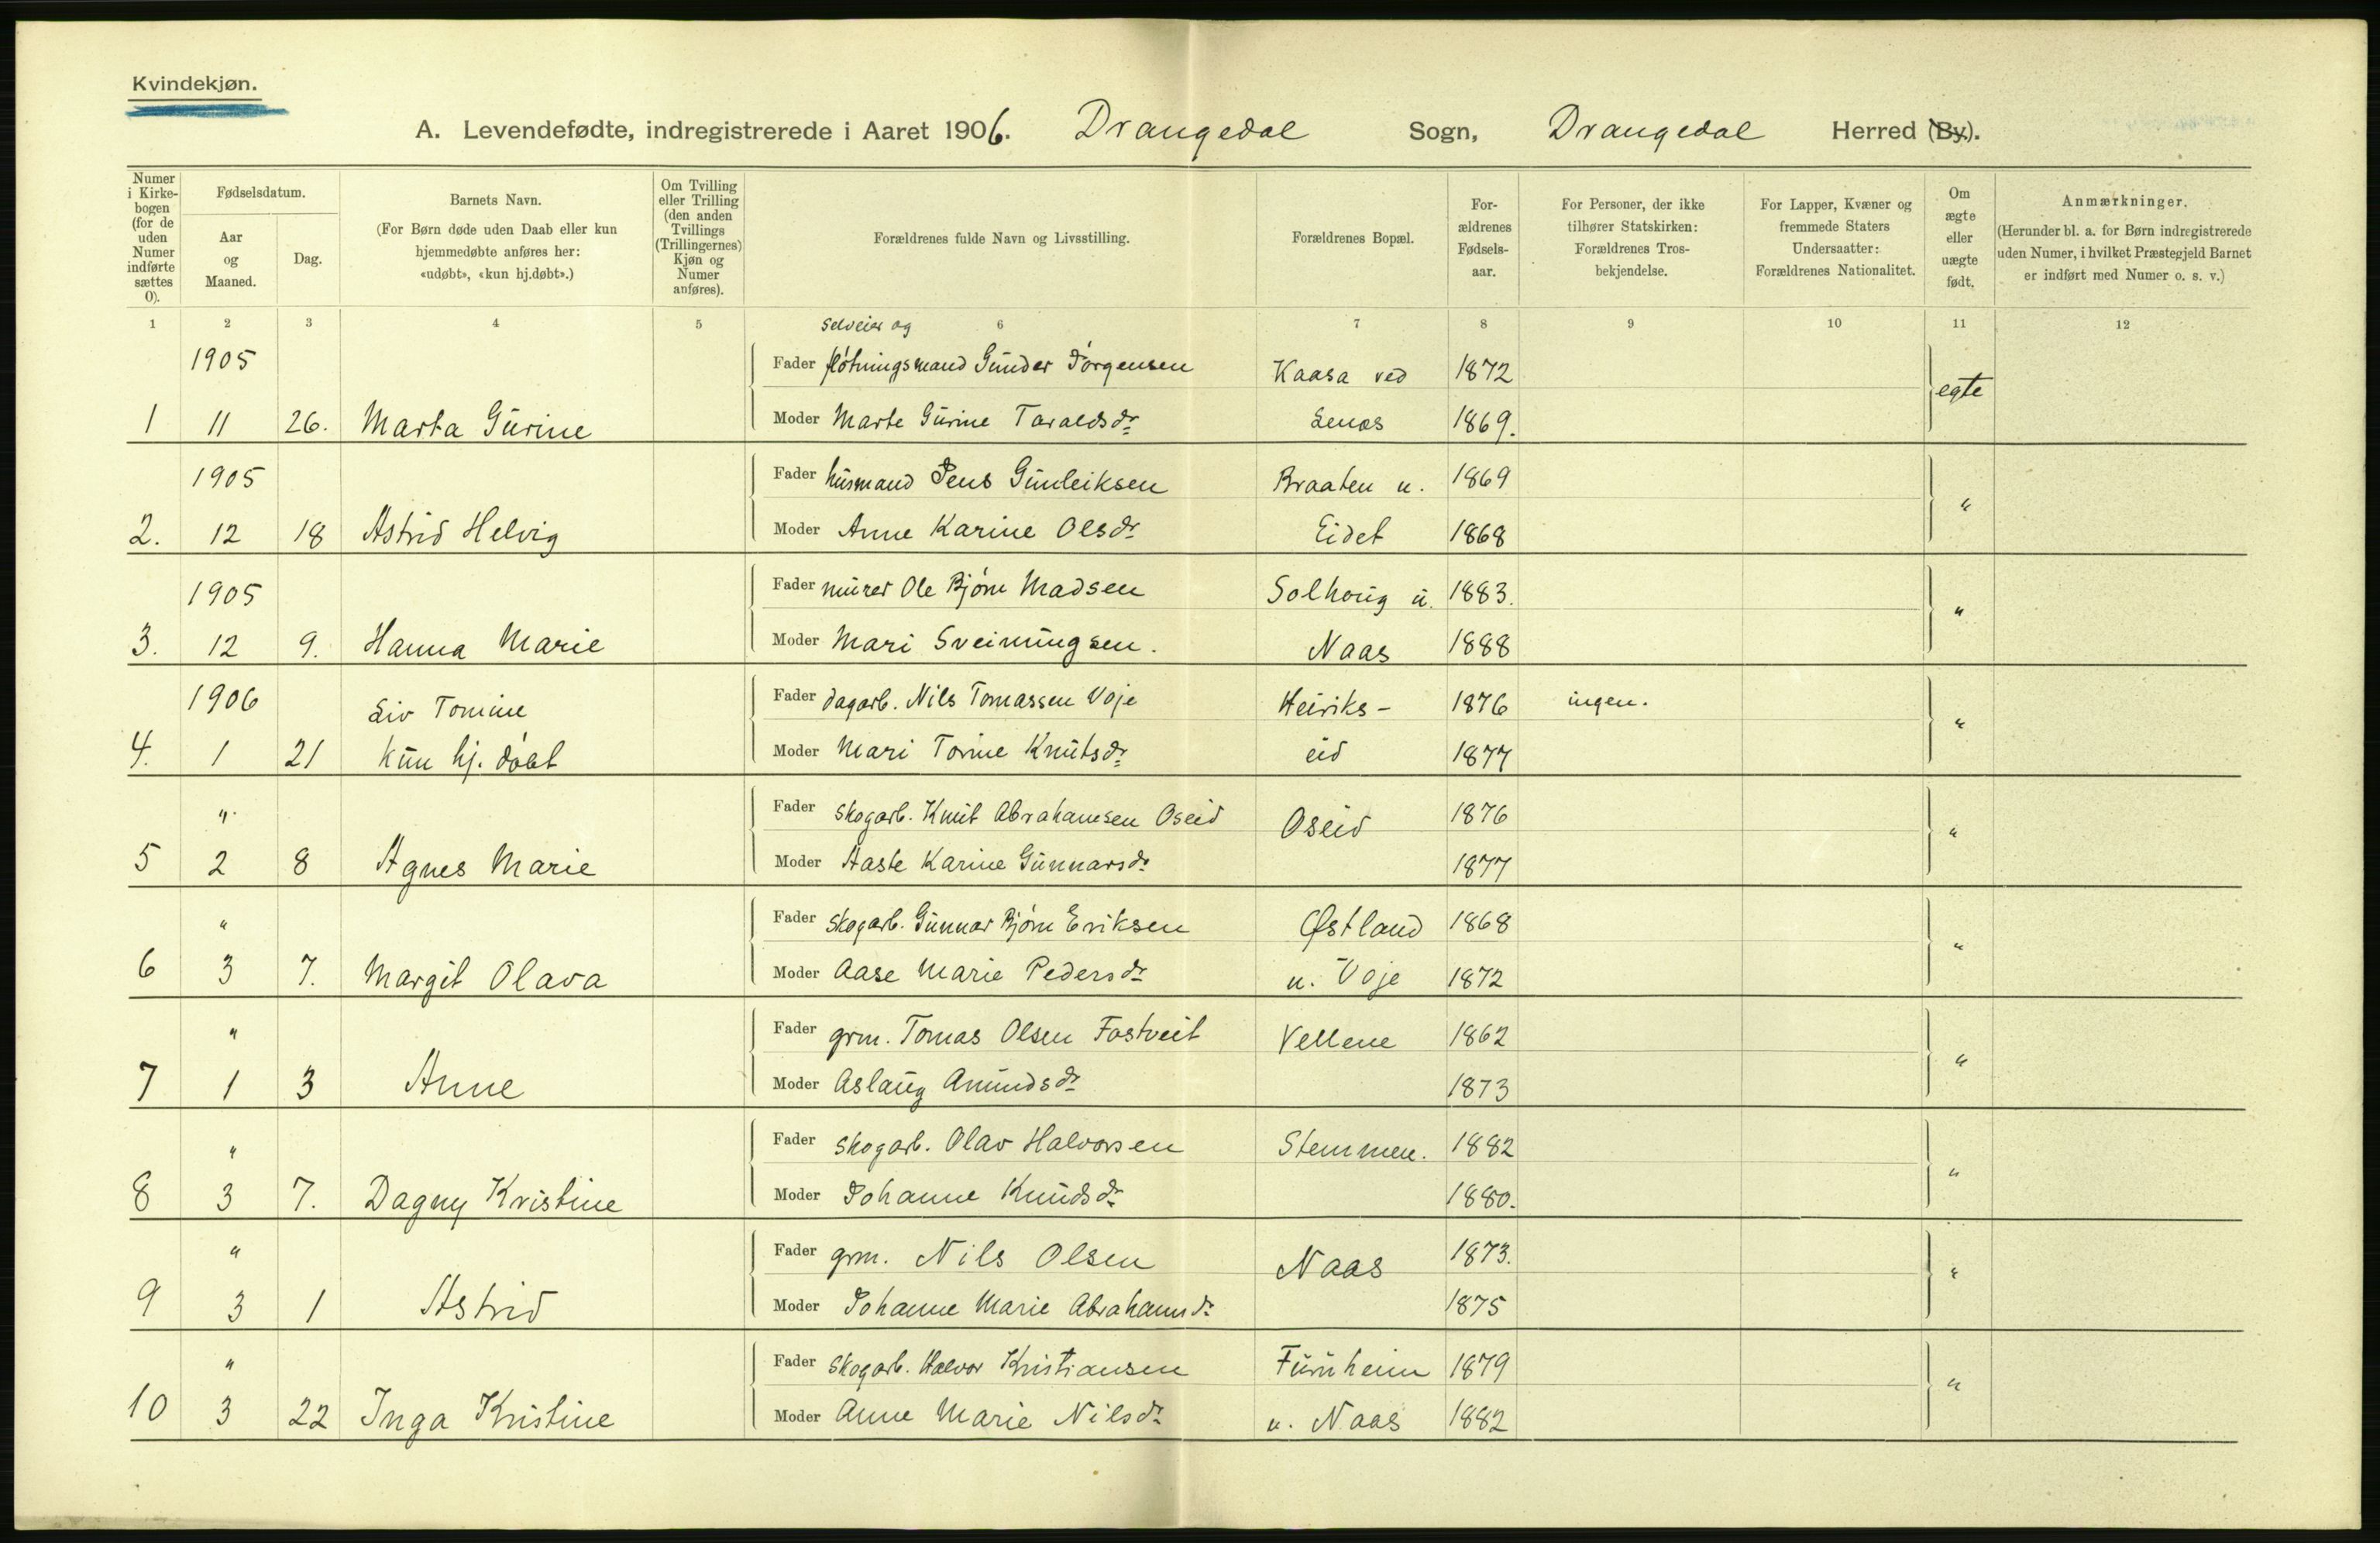 Kvindekjøn.
A. Levendefødte, indregistrerede i Aaret 1906. Drangedal Sogn, Drangedal Herred (By).
Numer i Kirke- bogen (for de uden Numer indførte sættes 0).
Fødselsdatum.
Aar og Maaned.
Dag.
Barnets Navn.
(For Børn døde uden Daab eller kun hjemmedøbte anføres her: «udøbt», «kun hj.døbt».)
Om Tvilling eller Trilling (den anden Tvillings (Trillingernes) Kjøn og Numer anføres).
Forældrenes fulde Navn og Livsstilling.
Forældrenes Bopæl.
For- ældrenes Fødsels- aar.
For Personer, der ikke tilhører Statskirken: Forældrenes Tros- bekjendelse.
For Lapper, Kvæner og fremmede Staters Undersaatter: Forældrenes Nationalitet.
Om ægte eller uægte født.
Anmærkninger.
(Herunder bl. a. for Børn indregistrerede uden Numer, i hvilket Præstegjeld Barnet er indført med Numer o. s. v.)
1 2 3 4 5 6 7 8 9 10 11 12
selveier og
1905 Fader fløtningsmand Gunder Jørgensen Kaasa ved 1872 egte
1 11 26. Marta Gurine Moder Marte Gurine Taraldsdr Lenes 1869.
1905 Fader husmand Jens Gunleiksen Braaten u. 1869 "
2. 12 18 Astrid Helvig Moder Anne Karine Olsdr Eidet 1868
1905 Fader murer Ole Bjørn Madsen Solhoug u. 1883. "
3. 12 9. Hanna Marie Moder Mari Sveinungsen. Naas 1888
1906 Liv Tomine Fader dagarb. Nils Tomassen Voje Heiriks- 1876 ingen. "
4. 1 21 kun hj. døbt Moder Mari Torine Knutsdr eid 1877
" Fader skogarb. Knut Abrahamsen Oseid Oseid 1876 "
5 2 8 Agnes Marie Moder Aaste Karine Gunnarsdr 1877
" Fader skogarb. Gunnar Bjørn Eriksen Østland 1868 "
6 3 7. Margit Olava Moder Aase Marie Pedersdr u. Voje 1872
" Fader grm. Tomas Olsen Fostveit Vellene 1862 "
7 1 3 Anne Moder Aslaug Amundsdr 1873
" Fader skogarb. Olav Halvorsen Stemmen. 1882 "
8 3 7. Dagny Kristine Moder Johanne Knudsdr 1880.
" Fader grm. Nils Olsen Naas 1873. "
9 3 1 Astrid Moder Johanne Marie Abrahamsdr 1875
" Fader skogarb. Halvor Kristiansen Furuheim 1879 "
10 3 22 Inga Kristine Moder Anne Marie Nilsdr u. Naas 1882